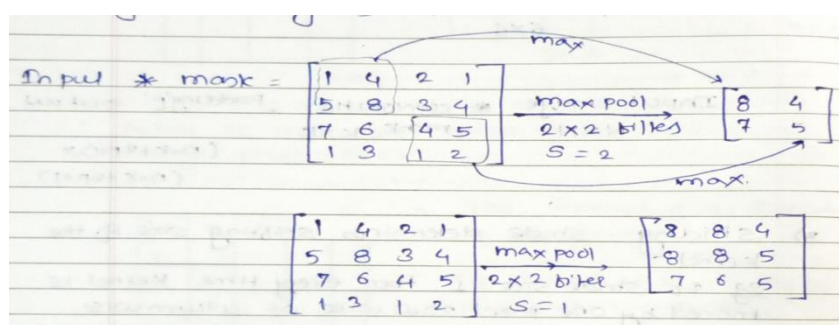 max
Input * mask = [1 4 2 1
5 8 3 4
7 6 4 5
1 3 1 2] max pool 2×2 filter S = 2 [8 4
7 5]
max.
[1 4 2 1
5 8 3 4
7 6 4 5
1 3 1 2] max pool 2×2 filter S = 1 [8 8 4
8 8 5
7 6 5]